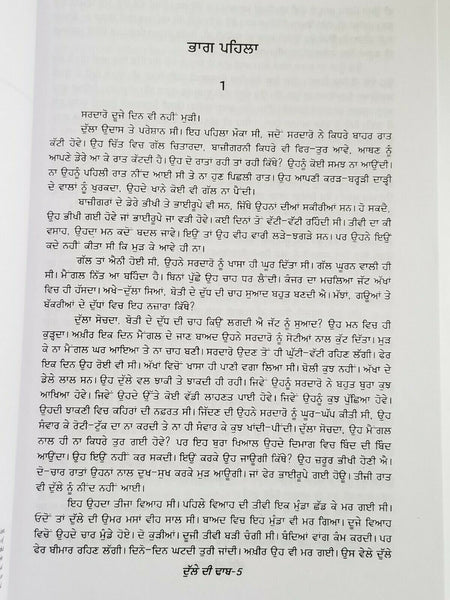 ਭਾਗ ਪਹਿਲਾ
1
ਸਰਦਾਰੋ ਦੂਜੇ ਦਿਨ ਵੀ ਨਹੀਂ ਮੁੜੀ।
ਦੁੱਲਾ ਉਦਾਸ ਤੇ ਪਰੇਸ਼ਾਨ ਸੀ। ਇਹ ਪਹਿਲਾ ਮੌਕਾ ਸੀ, ਜਦੋਂ ਸਰਦਾਰੋ ਨੇ ਕਿਧਰੇ ਬਾਹਰ ਰਾਤ
ਕੱਟੀ ਹੋਵੇ। ਉਹ ਚਿੱਤ ਵਿਚ ਗੱਲ ਚਿਤਾਰਦਾ, ਬਾਜ਼ੀਗਰਨੀ ਕਿਧਰੇ ਵੀ ਫਿਰ-ਤੁਰ ਆਵੇ, ਆਥਣ ਨੂੰ
ਆਪਣੇ ਡੇਰੇ ਆ ਕੇ ਰਾਤ ਕੱਟਦੀ ਹੈ। ਉਹ ਦੋ ਰਾਤਾਂ ਰਹੀ ਤਾਂ ਰਹੀ ਕਿੱਥੇ? ਉਹਨੂੰ ਕੋਈ ਸਮਝ ਨਾ ਆਉਂਦੀ।
ਨਾ ਉਹਨੂੰ ਪਹਿਲੀ ਰਾਤ ਨੀਂਦ ਆਈ ਸੀ ਤੇ ਨਾ ਹੁਣ ਪਿਛਲੀ ਰਾਤ। ਉਹ ਆਪਣੀ ਕਰੜ-ਬਰੜੀ ਦਾੜ੍ਹੀ
ਦੇ ਵਾਲਾਂ ਨੂੰ ਖੁਰਕਦਾ, ਉਹਦੇ ਖਾਨੇ ਕੋਈ ਵੀ ਗੱਲ ਨਾ ਪੈਂਦੀ।
ਬਾਜ਼ੀਗਰਾਂ ਦੇ ਡੇਰੇ ਭੀਖੀ ਤੇ ਭਾਈਰੂਪੇ ਵੀ ਸਨ, ਜਿੱਥੇ ਉਹਨਾਂ ਦੀਆਂ ਸਕੀਰੀਆਂ ਸਨ। ਹੋ ਸਕਦੈ,
ਉਹ ਭੀਖੀ ਗਈ ਹੋਵੇ ਜਾਂ ਭਾਈਰੂਪੇ ਜਾ ਵੜੀ ਹੋਵੇ। ਕਈ ਦਿਨਾਂ ਤੋਂ ਵੱਟੀ-ਵੱਟੀ ਰਹਿੰਦੀ ਸੀ। ਤੀਵੀਂ ਦਾ ਕੀ
ਵਸਾਹ, ਉਹਦਾ ਮਨ ਕਦੋਂ ਬਦਲ ਜਾਵੇ। ਇਉਂ ਤਾਂ ਉਹ ਵੀਹ ਵਾਰੀ ਲੜੇ-ਝਗੜੇ ਸਨ। ਪਰ ਉਹਨੇ ਇਉਂ
ਕਦੇ ਨਹੀਂ ਕੀਤਾ ਸੀ ਕਿ ਮੁੜ ਕੇ ਆਵੇ ਹੀ ਨਾ।
ਗੱਲ ਤਾਂ ਐਨੀ ਹੋਈ ਸੀ, ਉਹਨੇ ਸਰਦਾਰੋ ਨੂੰ ਖਾਸਾ ਹੀ ਘੂਰ ਦਿੱਤਾ ਸੀ। ਗੱਲ ਘੂਰਨ ਵਾਲੀ ਹੀ
ਸੀ। ਮੈਂਗਲ ਨਿੱਤ ਆ ਬਹਿੰਦਾ ਹੈ। ਬਿਨਾਂ ਪੁੱਛੇ ਉਹ ਚਾਹ ਧਰ ਲੈਂਦੀ। ਕੰਜਰ ਦਾ ਮਚਲਿਆ ਜੱਟ ਅੱਖਾਂ
ਵਿਚ ਹੀ ਹੱਸਦਾ। ਅਖੇ-ਦੁੱਲਾ ਸਿਆਂ, ਬੋਤੀ ਦੇ ਦੁੱਧ ਦੀ ਚਾਹ ਸੁਆਦ ਬਹੁਤ ਬਣਦੀ ਐ। ਮੱਝਾਂ, ਗਊਆਂ ਤੇ
ਬੱਕਰੀਆਂ ਦੇ ਦੁੱਧਾਂ ਵਿਚ ਇਹ ਨਜ਼ਾਰਾ ਕਿੱਥੇ?
ਦੁੱਲਾ ਸੋਚਦਾ, ਬੋਤੀ ਦੇ ਦੁੱਧ ਦੀ ਚਾਹ ਕਿਉਂ ਲਗਦੀ ਐ ਜੱਟ ਨੂੰ ਸੁਆਦ? ਉਹ ਮਨ ਵਿਚ ਹੀ
ਕੁੜ੍ਹਦਾ। ਅਖ਼ੀਰ ਇਕ ਦਿਨ ਮੈਂਗਲ ਦੇ ਜਾਣ ਬਾਅਦ ਉਹਨੇ ਸਰਦਾਰੋ ਨੂੰ ਸੋਟੀਆਂ ਨਾਲ ਕੁੱਟ ਦਿੱਤਾ। ਮੁੜ
ਕੇ ਨਾ ਮੈਂਗਲ ਘਰ ਆਇਆ ਤੇ ਨਾ ਚਾਹ ਬਣੀ। ਸਰਦਾਰੋ ਉਦਣ ਤੋਂ ਹੀ ਘੁੱਟੀ-ਵੱਟੀ ਰਹਿਣ ਲੱਗੀ। ਫੇਰ
ਇਕ ਦਿਨ ਉਹ ਰੋਈ ਵੀ ਸੀ। ਅੱਖਾਂ ਵਿਚੋਂ ਖਾਸਾ ਹੀ ਪਾਣੀ ਵਗਾ ਲਿਆ ਸੀ। ਬੋਲੀ ਕੁਝ ਨਹੀਂ। ਅੱਖਾਂ ਦੇ
ਡੇਲੇ ਲਾਲ ਸਨ। ਉਹ ਦੁੱਲੇ ਵਲ ਝਾਕੀ ਤੇ ਝਾਕਦੀ ਹੀ ਰਹੀ। ਜਿਵੇਂ ਉਹਨੂੰ ਸਰਦਾਰੋ ਨੇ ਬਹੁਤ ਬੁਰਾ ਕੁਝ
ਆਖਿਆ ਹੋਵੇ। ਜਿਵੇਂ ਉਹਦੇ ਉੱਤੇ ਕੋਈ ਵੱਡੀ ਲਾਹਣਤ ਪਾਈ ਹੋਵੇ। ਜਿਵੇਂ ਉਹਨੂੰ ਕੁਝ ਪੁੱਛਿਆ ਹੋਵੇ।
ਉਹਦੀ ਝਾਕਣੀ ਵਿਚ ਕਹਿਰਾਂ ਦੀ ਨਫ਼ਰਤ ਸੀ। ਜਿੱਦਣ ਦੀ ਉਹਨੇ ਸਰਦਾਰੋ ਨੂੰ ਘੂਰ-ਘੱਪ ਕੀਤੀ ਸੀ, ਉਹ
ਸੰਵਾਰ ਕੇ ਰੋਟੀ-ਟੁੱਕ ਦਾ ਨਾ ਕਰਦੀ ਤੇ ਨਾ ਹੀ ਸੰਵਾਰ ਕੇ ਕੁਝ ਖਾਂਦੀ-ਪੀਂਦੀ। ਦੁੱਲਾ ਸੋਚਦਾ, ਉਹ ਮੈਂਗਲ
ਨਾਲ ਹੀ ਨਾ ਕਿਧਰੇ ਤੁਰ ਗਈ ਹੋਵੇ? ਪਰ ਇਹ ਬੁਰਾ ਖਿਆਲ ਉਹਦੇ ਦਿਮਾਗ ਵਿਚ ਬਿੰਦ ਦੀ ਬਿੰਦ
ਆਉਂਦਾ। ਉਹ ਇਉਂ ਨਹੀਂ ਕਰ ਸਕਦੀ। ਇਉਂ ਕਰਕੇ ਉਹ ਜਾਊਗੀ ਕਿੱਥੇ? ਉਹ ਜ਼ਰੂਰ ਭੀਖੀ ਹੋਣੀ ਐ।
ਦੋ-ਚਾਰ ਰਾਤਾਂ ਉਹਨਾਂ ਨਾਲ ਦੁਖ-ਸੁਖ ਕਰਕੇ ਮੁੜ ਆਊਗੀ। ਜਾਂ ਫੇਰ ਭਾਈਰੂਪੇ ਗਈ ਹੋਊ। ਤੀਜੀ ਰਾਤ
ਵੀ ਦੁੱਲੇ ਨੂੰ ਨੀਂਦ ਨਹੀਂ ਆਈ।
ਇਹ ਉਹਦਾ ਤੀਜਾ ਵਿਆਹ ਸੀ। ਪਹਿਲੇ ਵਿਆਹ ਦੀ ਤੀਵੀਂ ਇਕ ਮੁੰਡਾ ਛੱਡ ਕੇ ਮਰ ਗਈ ਸੀ।
ਓਦੋਂ ਤਾਂ ਦੁੱਲੇ ਦੀ ਉਮਰ ਮਸਾਂ ਵੀਹ ਸਾਲ ਸੀ। ਬਾਅਦ ਵਿਚ ਇਹ ਮੁੰਡਾ ਵੀ ਮਰ ਗਿਆ। ਦੂਜੇ ਵਿਆਹ
ਵਿਚੋਂ ਉਹਦੇ ਚਾਰ ਮੁੰਡੇ ਹੋਏ। ਦੋ ਕੁੜੀਆਂ। ਦੂਜੀ ਤੀਵੀਂ ਬੜੀ ਚੰਗੀ ਸੀ। ਬੰਦਿਆਂ ਵਾਂਗ ਕੰਮ ਕਰਦੀ। ਪਰ
ਫੇਰ ਬੀਮਾਰ ਰਹਿਣ ਲੱਗੀ। ਦਿਨੋ-ਦਿਨ ਘਟਦੀ ਤੁਰੀ ਜਾਂਦੀ। ਅਖ਼ੀਰ ਉਹ ਵੀ ਮਰ ਗਈ। ਉਸ ਵੇਲੇ ਦੁੱਲੇ
ਦੁੱਲੇ ਦੀ ਢਾਬ-5